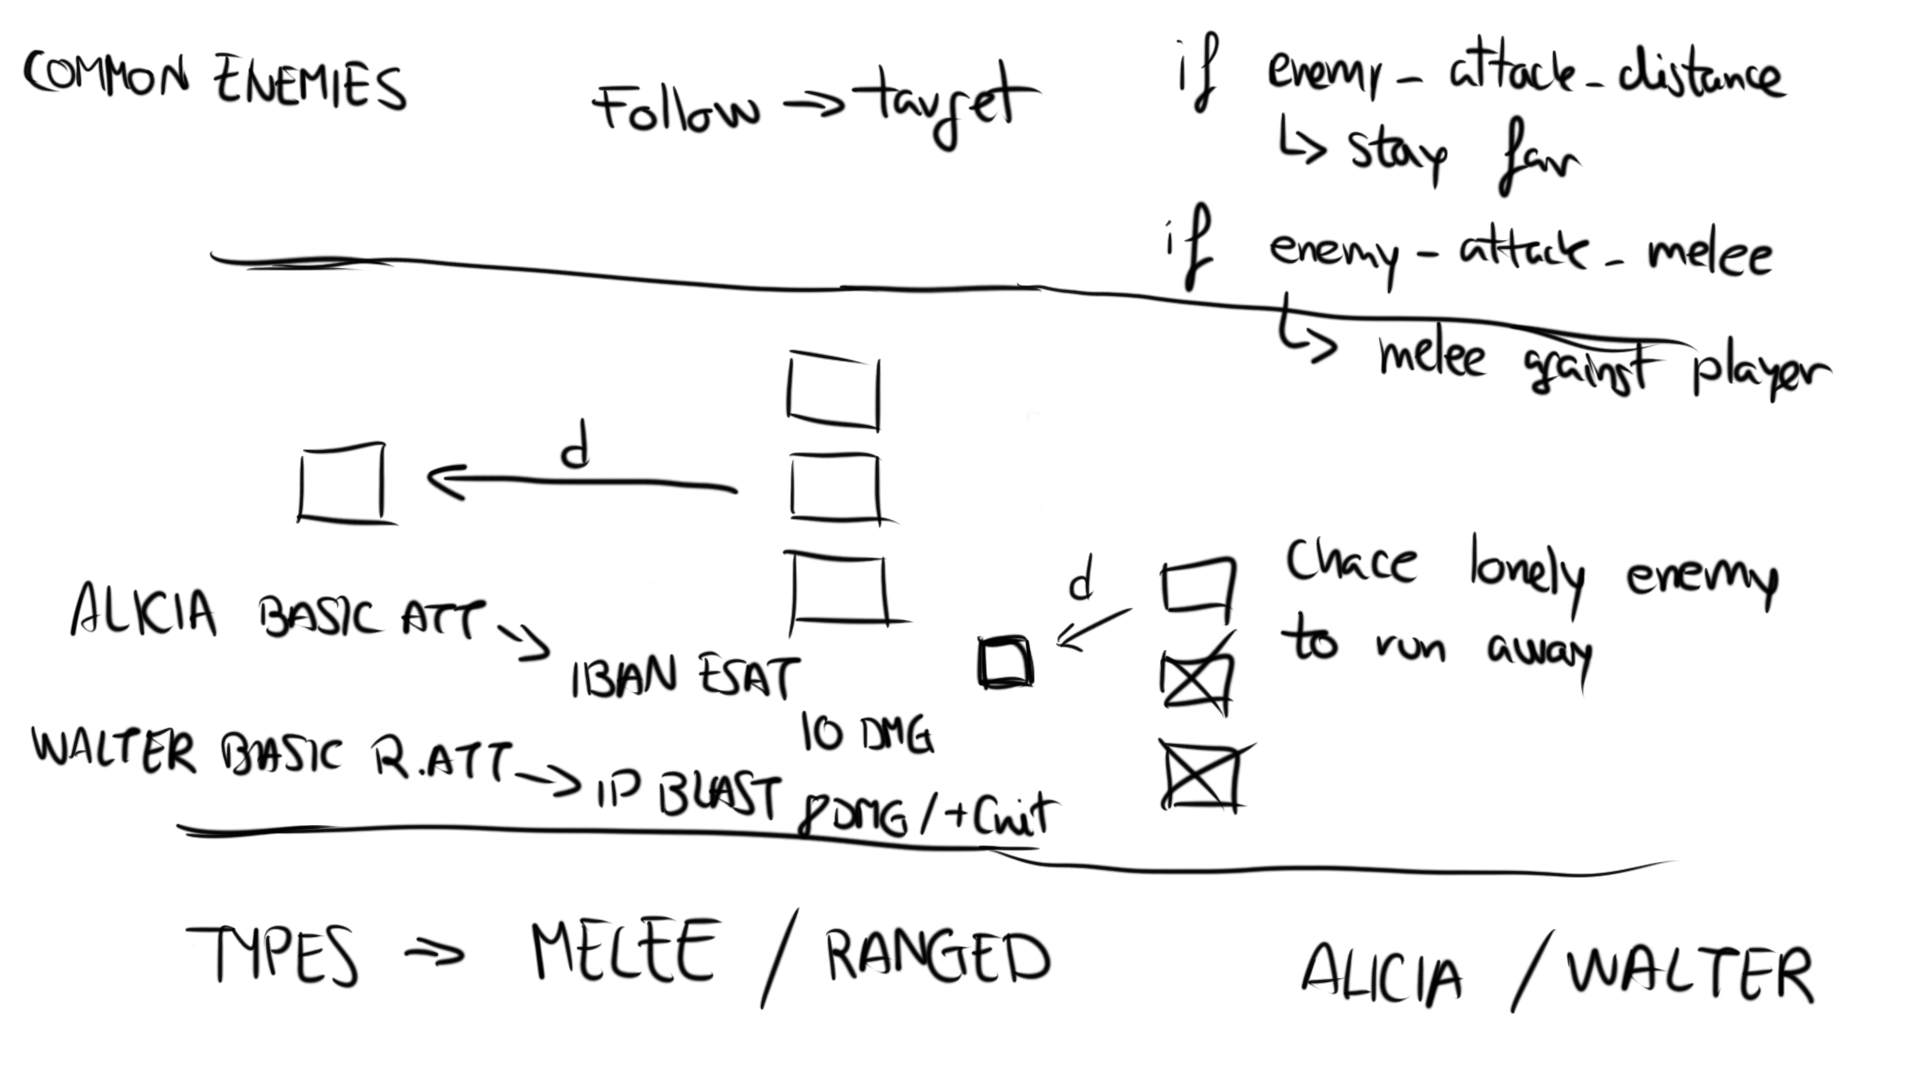 COMMON ENEMIES
Follow → target
if enemy_attack_distance
↳ stay far
if enemy_attack_melee
↳ melee against player
d
d
Chace lonely enemy
to run away
ALICIA BASIC ATT →
IBAN ESAT
10 DMG
WALTER BASIC R.ATT → IP BLAST 8 DMG/+Crit
TYPES → MELEE / RANGED
ALICIA / WALTER